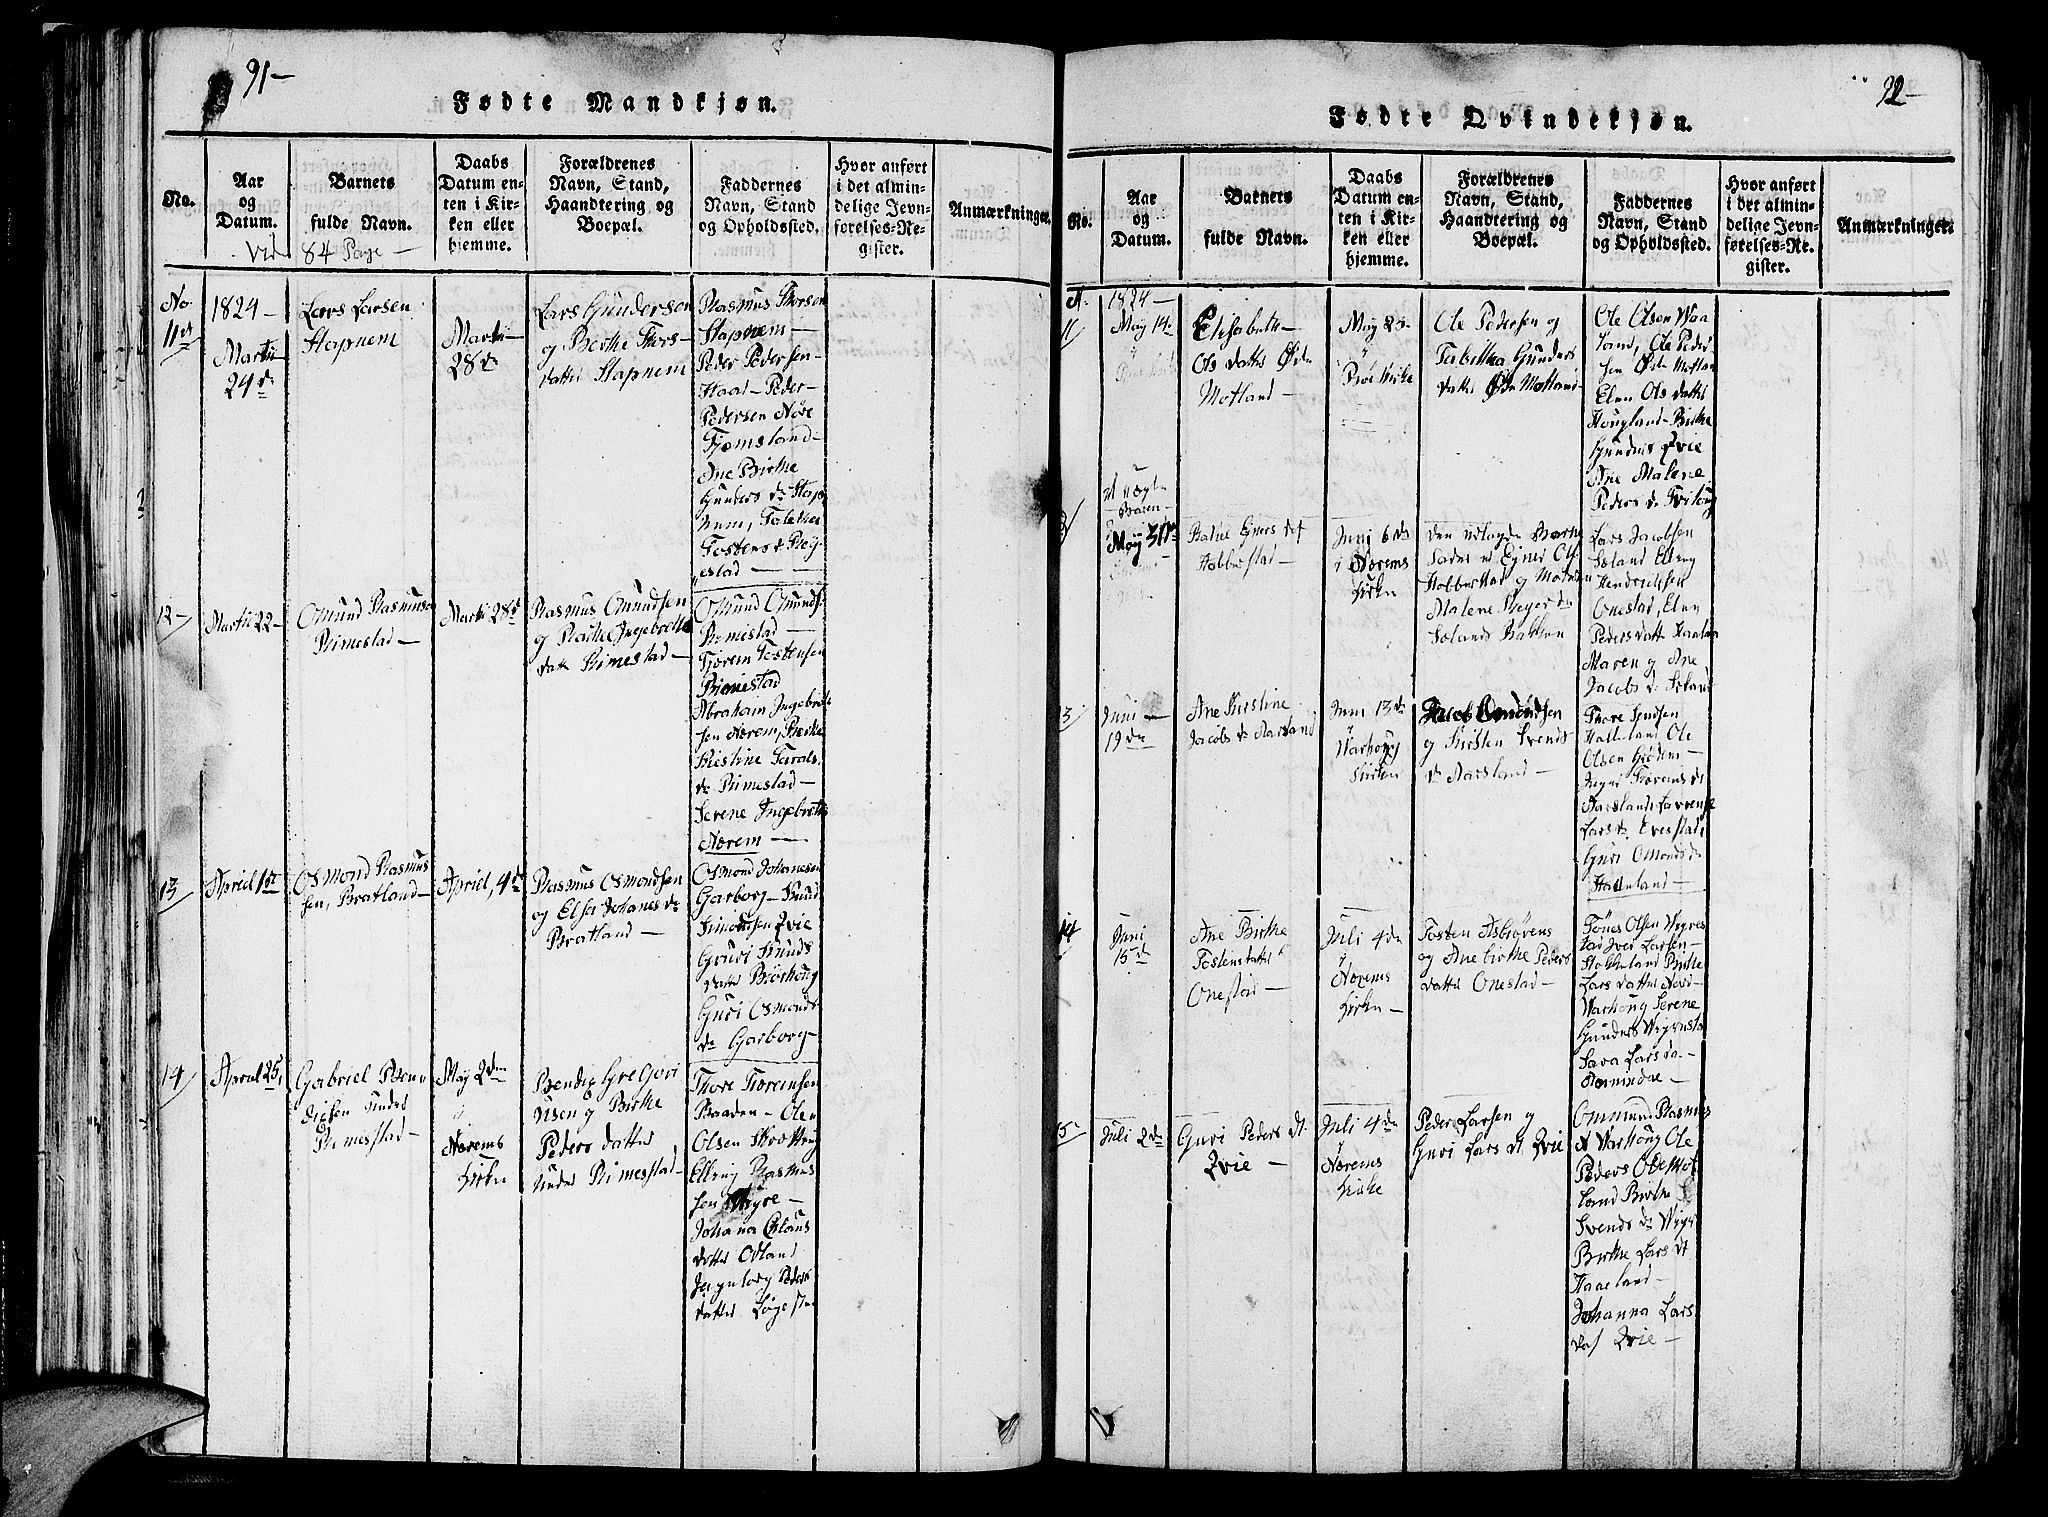 91-
Fødte Mandkjøn.
No.
Aar
og
Datum.
Barnets
fulde Navn.
Daabs
Datum en-
ten i Kir-
ken eller
hjemme.
Forældrenes
Navn, Stand,
Haandtering og
Boepæl.
Faddernes
Navn, Stand
og Opholdssted.
Hvor anført
i det almin-
delige Jevn-
førelses-Re-
gister.
Anmærkninger.
Vid 84 Page -
No
11
1824 -
Martii
24 d
Lars Larsen
Stapnem
Martii
28 d
Lars Gunderson
og Berthe Thors
datter Stapnem
Rasmus Thorson
Stapnem -
Peder Pedersen
Haad - Peder
Pedersen Nøre
Fjomsland -
Ane Birthe
Gunders d Stap
num,
Tostens d Rey
estad -
12
Martii 22 -
Omund Rasmusen
Rimestad -
Martii 28 d
Rasmus Omundsen
og Ingebrethe
datt Rimestad -
Omund Omunds
Rimestad -
Tjorem Tostensen
Rimestad
Abraham Ingebret
sen Nærem, Berthe
Kiestine Tarals
d Rimestad -
Serene Ingebretts
Nærem -
13
Apriel 1
Osmond Rasmus
sen, Bratland -
Apriel, 4 d
Rasmus Osmondsen
og Elsa Johanes d
Bratland -
Osmond Johanesen
Garborg - Knud
Simondsen Qvie
Guri Knuds
datter
Guri Osmonds
d Garborg -
14
April 25,
Gabriel Ben
dixsen undes
Rimestad -
May 2 den
i
Nærems
Kirke
Bendix Gregori
usen og Birthe
Peders datter
undes Rimestad -
Thore Toremsen
Braaden - Olen
Olsen
Elling Rasmus
sen
Johana Claus
datter Odland
Ingeborg Peders
datter
92-
Fødte Qvindekjøn.
No.
Aar
og
Datum.
Barnets
fulde Navn.
Daabs
Datum en-
ten i Kir-
ken eller
hjemme.
Forældrenes
Navn, Stand,
Haandtering og
Boepæl.
Faddernes
Navn, Stand
og Opholdssted.
Hvor anført
i det almin-
delige Jevn-
førelses-Re-
gister.
Anmærkninger.
11
1824 -
May 14
Elisabeth
Ols datter Øde
Motland -
May 23
i
Bøe Kirke
Ole Pedersen og
Tabittha Gunders
datter Øde Motland
Ole Olsen Waa
land, Ole Peder
sen Øde Motlan
Elen Ols datter
Hougland - Birthe
Gunders Qvie
Ane Malene
Peders d
Uægte
Baren
May 31
Ejners dat
Hobberstad -
Juni 6 d
i Nærems
Kirken
Den udlagde Barne
fader er Ejner Ols
Hobberstad og Moder
Malene Reger d
Sælands Bakken
Lars Jacobsen
Sæland Elling
Henderichsen
Onestad, Elen
Peders datt Haaland
Maren og Ane
Jacobs d Sæland
13
Juni
19 d
Ane Kirstine
Jacobs d Aarsland
Juni 13 d
i
Warhoug
Kirken
og Kirsten Svends
d Aarsland -
Thore Knudsen
Hatteland Ole
Olsen
Ingri Torems d
Aarsland Lavrense
Lars d. Everstad
Guri Omonds d
Hatteland -
14
Juni
15 d
Ane Birthe
Tostensdatter
Onestad -
Juli 4 d
i
Nærems
Kirken -
Tosten Asbiørens
og Ane birthe Peders
datter Onestad -
Tønes Olsen
Iver Larsen -
Stokkeland Birthe
Lars datter Nord-
Warhoug Serene
Gunders
Sara Lars d -
15
Juli 2 d
Guri Peders dt.
Qvie -
Juli 4 d
i
Nærems
Kirke
Peder Larsen og
Guri Lars dt Qvie
Ommund Rasmus
Warhoug Ole
Peders Ødemot
land Birthe
Svends d
Birthe Lars dt
Haaeland -
Johanna Lars
dat Qvie -